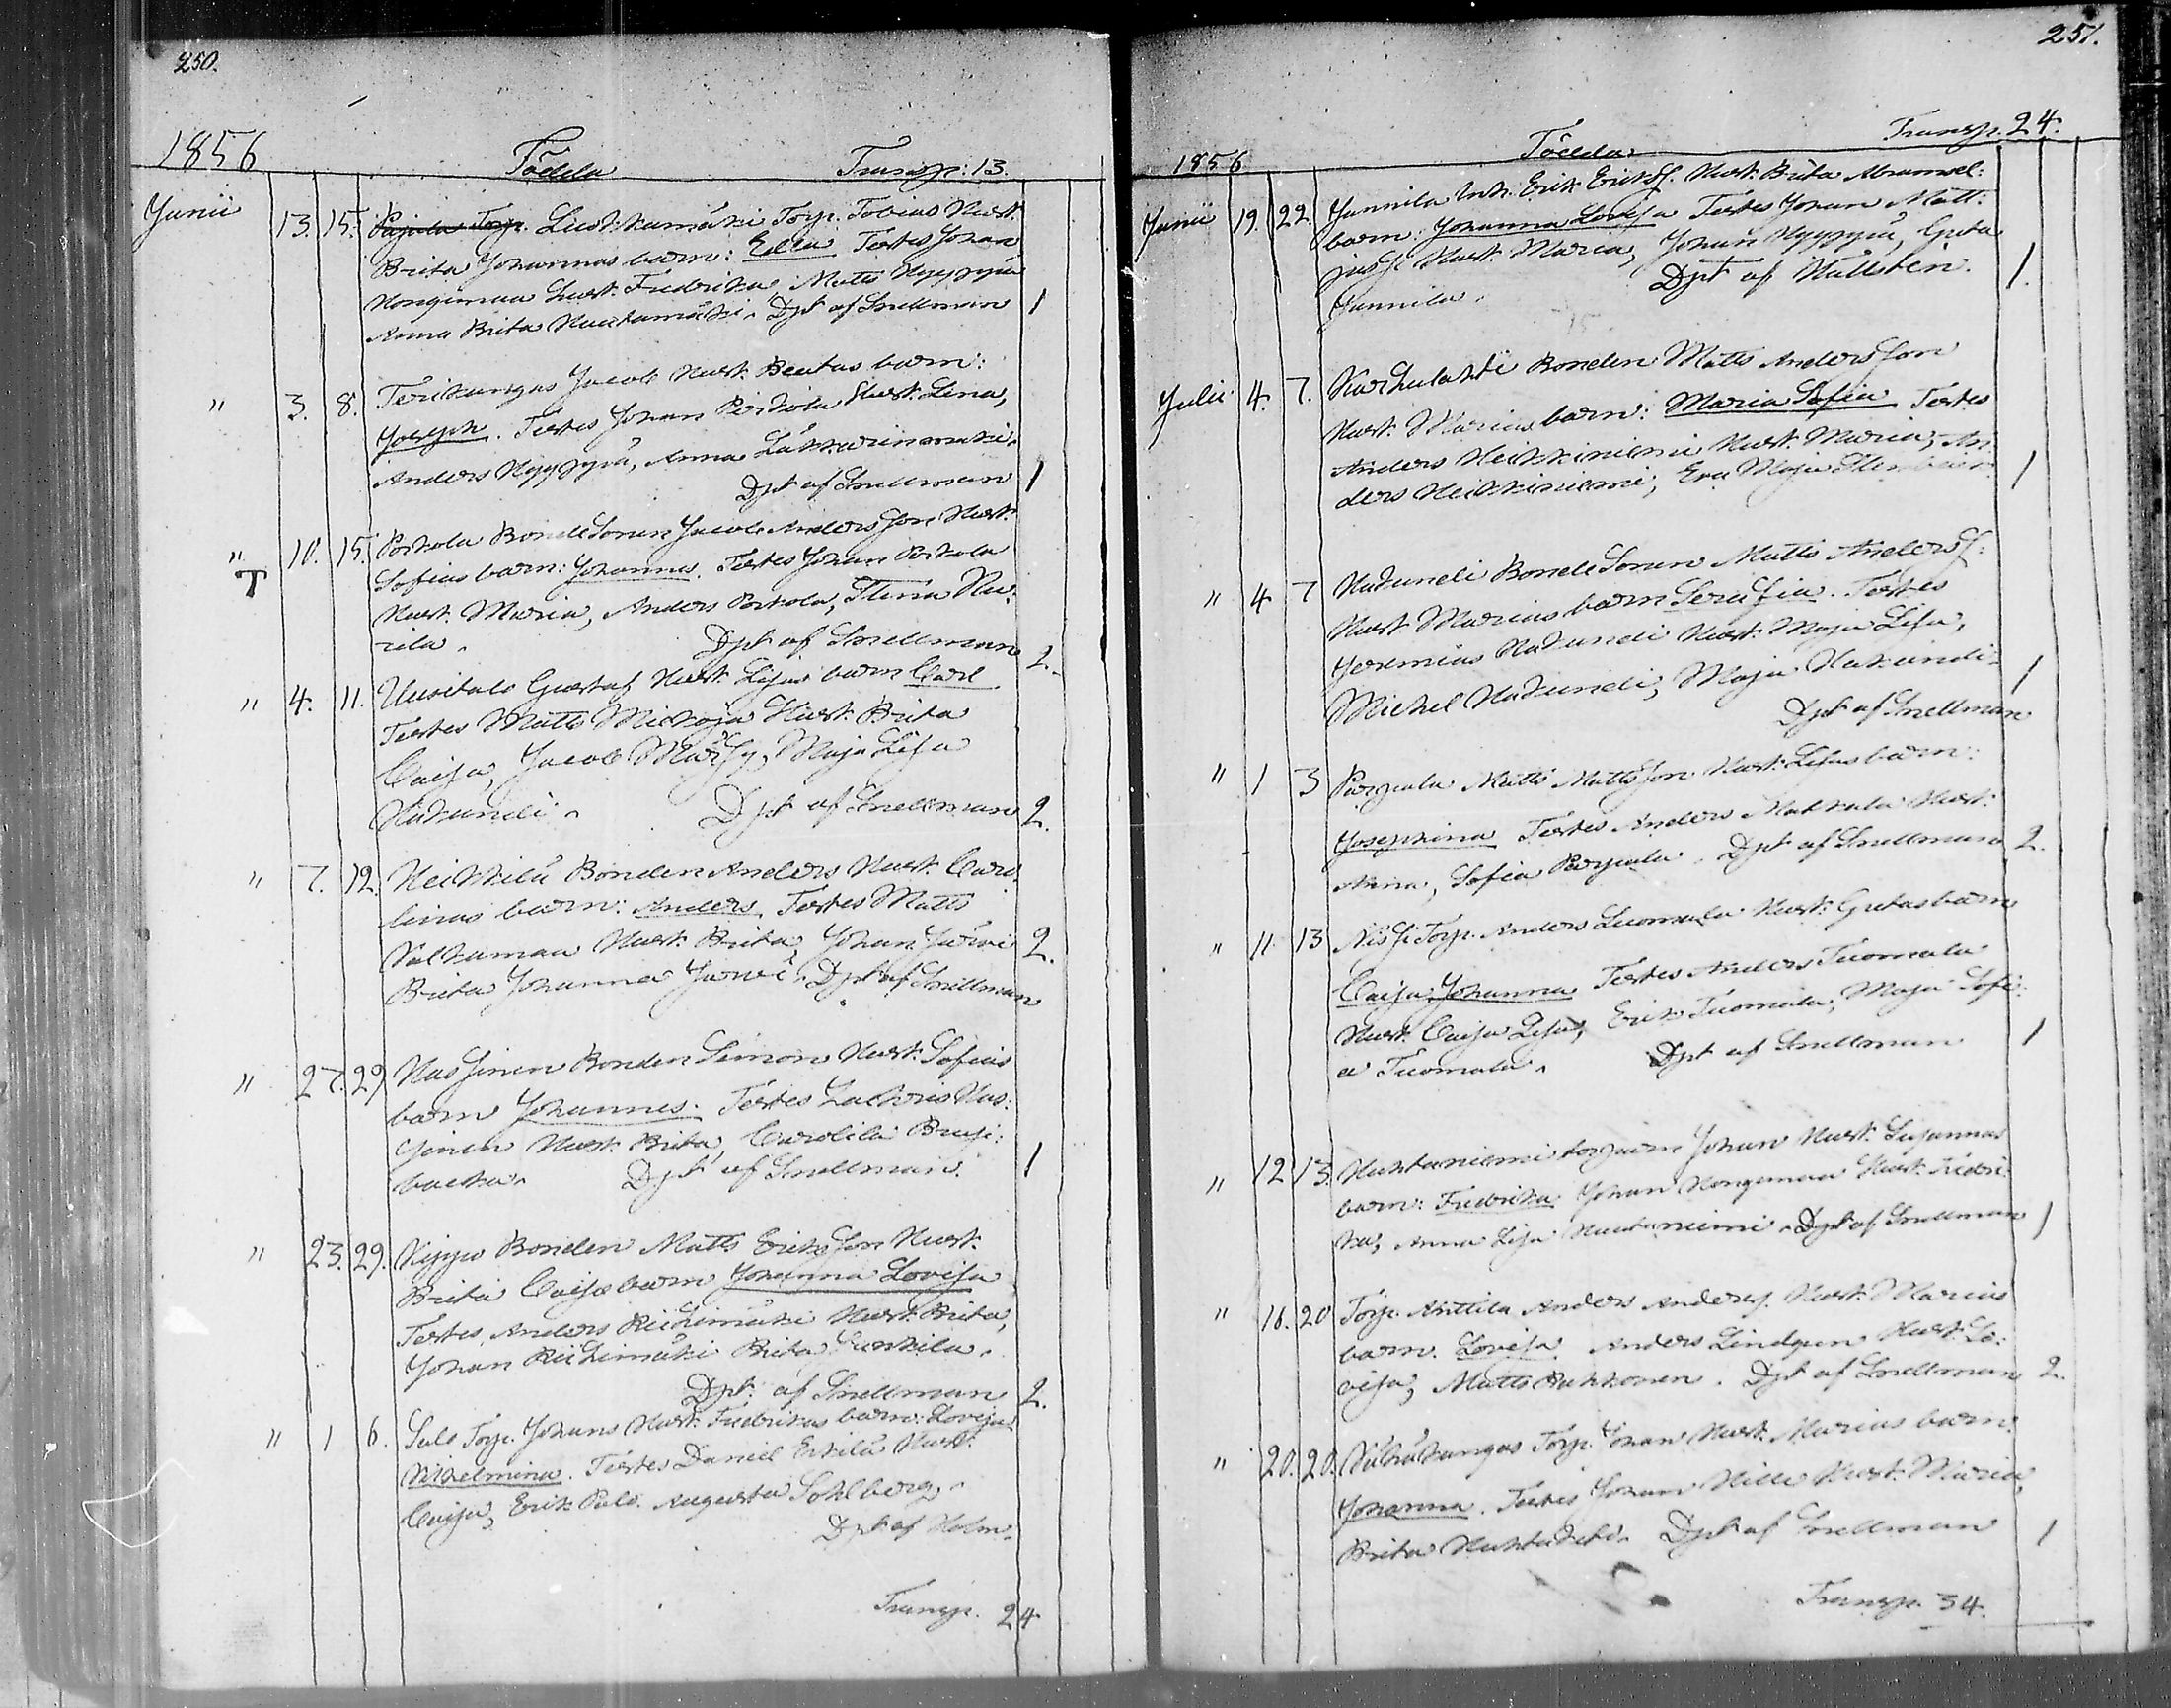 250.
1856 Födda Transp: 13.
Junii 13. 15. Pajula Torp. Torp. Tobias Hust.
Brita Johannas barn: Edla Testes Johan
Honginmaa hust. Fredrika, Matts Nyypyä
Anna Brita Dpt af Snellman 1
" 3. 8. Terikangas Jacob Hust. Beatas barn:
Joseph. Testes Johan Porkola Hust. Lena,
Anders Nyypyä, Anna
Dpt af Snellman 1
" 10. 15. Porkola BondeSonen Jacob AndersSon Hust.
T Sofias barn: Johannes. Testes Johan Porkola
Hust. Maria, Anders Porkola, Stina Nu:
rila. Dpt af Snellman 2.
" 4. 11. Uusitalo Gustaf Hust. Lisas barn Carl
Testes Matts Hust. Brita
Caisa, Jacob Maja Lisa
Hakundi. Dpt af Snellman 2.
" 7. 12. Heikkilä Bonden Anders Hust. Caro:
linas barn: Anders. Testes Matts
Valkamaa Hust. Brita, Johan Järvi 2.
Brita Johanna Järvi. Dpt af Snellman
" 27. 29. Hassinen Bonden Simon Hust. Sofias
barn Johannes. Testes Zachris Has:
sinen Hust. Brita, Carolila
backa. Dpt af Snellman. 1
" 23. 29. Bonden Matts EriksSon Hust.
Brita Caisa barn Johanna Lovisa
Testes Anders Riihimäki Hust. Brita,
Johan Riihimäki Brita
Dpt. af Snellman 2.
" 1 6. Salo Torp. Johans Hust. Fredrikas barn: Lovisa
Wilhelmina. Testes Daniel Erkilä Hust.
Caisa, Erik Palo. Augusta Sohlberg.
Dpt af Holm.
Transp. 24
251.
1856 Födda Transp. 24.
Junii 19. 22. Junnila Inh. Erik Erikss. Hust. Brita
barn: Johanna Lovisa Testes Johan Matt:
Hust. Maria, Johan Nyypyä, Greta
Junnila. Dpt af Hällstén. 1.
Julii 4. 7. Karhulahti Bonden Matts AndersSon
Hust. Marias barn: Maria Sofia Testes
Anders Heikkiniemi Hust. Maria, An:
ders Heikkiniemi, Eva Maja 1
" 4 7 Hakundi BondeSonen Matts Anderss:
Hust Marias barn Serafia. Testes
Jeremias Hakundi Hust. Maja Lisa,
Michel Hakundi, Maja Hakundi. 1
Dpt af Snellman
" 1 3 Matts MattsSon Hust. Lisas barn:
Josephina Testes Anders Hust.
Anna, Sofia Dpt af Snellman 2.
" 11 13 Torp. Anders Luomala Hust. Gretas barn
Caisa Johanna Testes Anders Tuomala
Hust. Caisa Lisa, Erik Tuomala, Maja Sofi:
a Tuomala. Dpt af Snellman 1
" 12 13. Huhtaniemi torparn Johan Hust. Susannas
barn: Fredrika Johan Honginmaa Hust. Fredri:
ka, Anna Lisa Huhtaniemi. Dpt af Snellman 1
" 16. 20 Torp. Anttila Anders Anderss. Hust. Marias
barn. Lovisa. Anders Lindgren Hust. Lo:
visa, Matts Dpt af Snellman 2.
" 20. 20. Torp. Johan Hust. Marias barn:
Johanna. Testes Johan Hille Hust. Maria,
Brita Dpt af Snellman 1
Transp. 34.